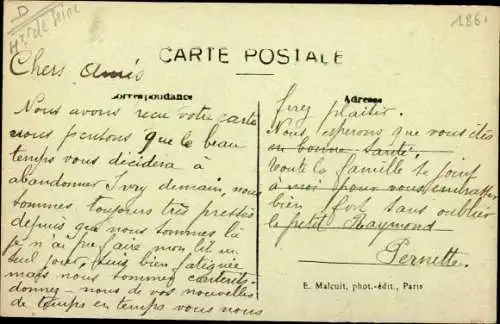 D
Hte de Seine
1861
CARTE POSTALE
Correspondance
Adresse
Chers amis
Nous avons recu votre carte
nous pensons que le beau
temps vous décidera à
abandonner Ivry demain, nous
sommes toujours très pressés
depuis que nous sommes là
je n'ai pu faire mon lit un
seul jour, suis bien fatiguée
mais nous sommes contents.
donnez-nous de vos nouvelles
de temps en temps vous nous
ferez plaisir.
Nous esperons que vous êtes
en bonne santé,
toute la famille se joint
à moi pour vous embrasser
bien fort sans oublier
le petit Raymond
Pernette.
E. Malcuit, phot.-édit., Paris